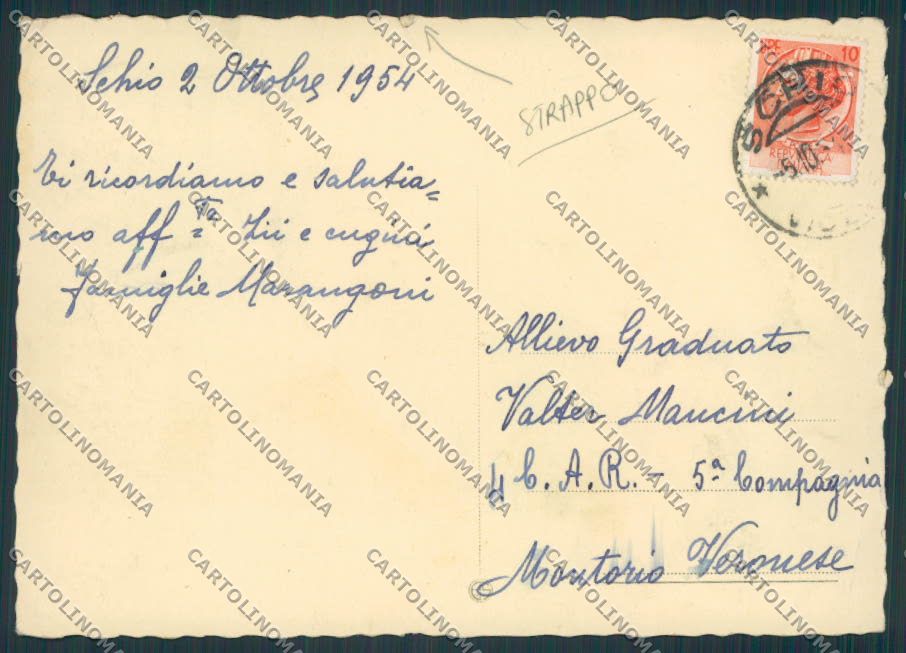 Schio 2 Ottobre 1954
STRAPPO
10
SCHIO
5.10.
Vi ricordiamo e salutia=
mo aff=te Zii e cugini
Famiglie Marangoni
Allievo Graduato
Valter Mancini
4 C. A. R. - 5ª Compagnia
Montorio Veronese
CARTOLINOMANIA